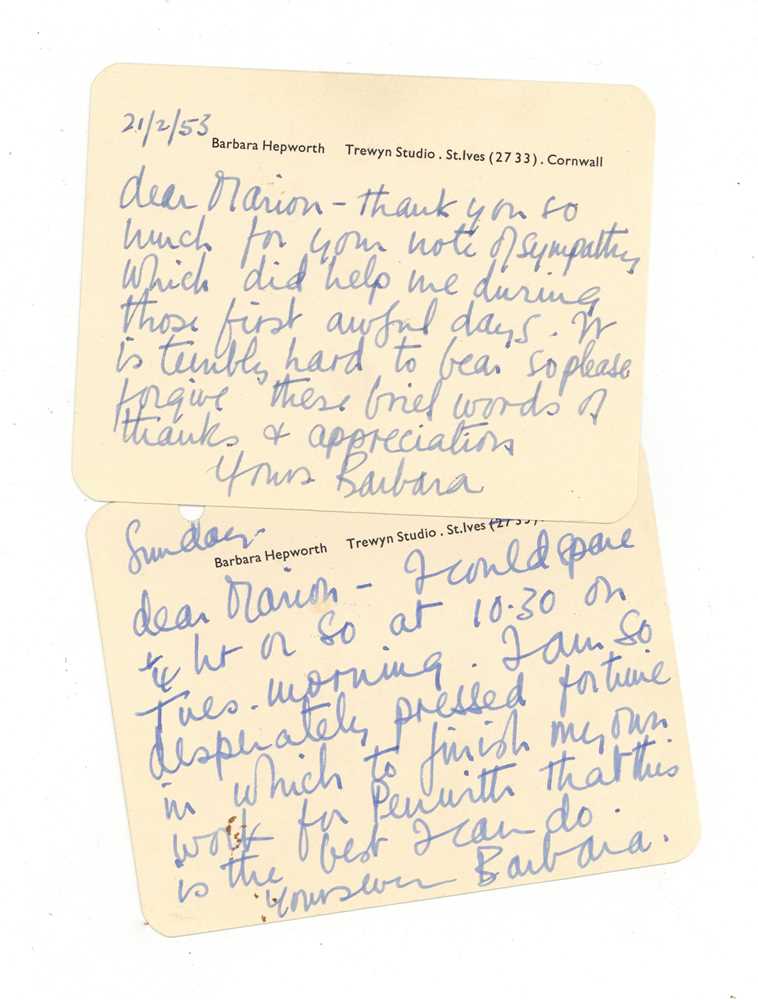 21/2/53
Barbara Hepworth Trewyn Studio . St.Ives (2733) . Cornwall
dear Marion – thank you so
much for your note of sympathy
which did help me during
those first awful days. It
is terribly hard to bear so please
forgive these brief words of
thanks & appreciation
Yours Barbara
Sunday.
Barbara Hepworth Trewyn Studio . St.Ives (2733) .
dear Marion – I could spare
¼ hr or so at 10.30 on
Tues. morning. I am so
desperately pressed for time
in which to finish my own
work for Penwith that this
is the best I can do.
Yours ever Barbara.